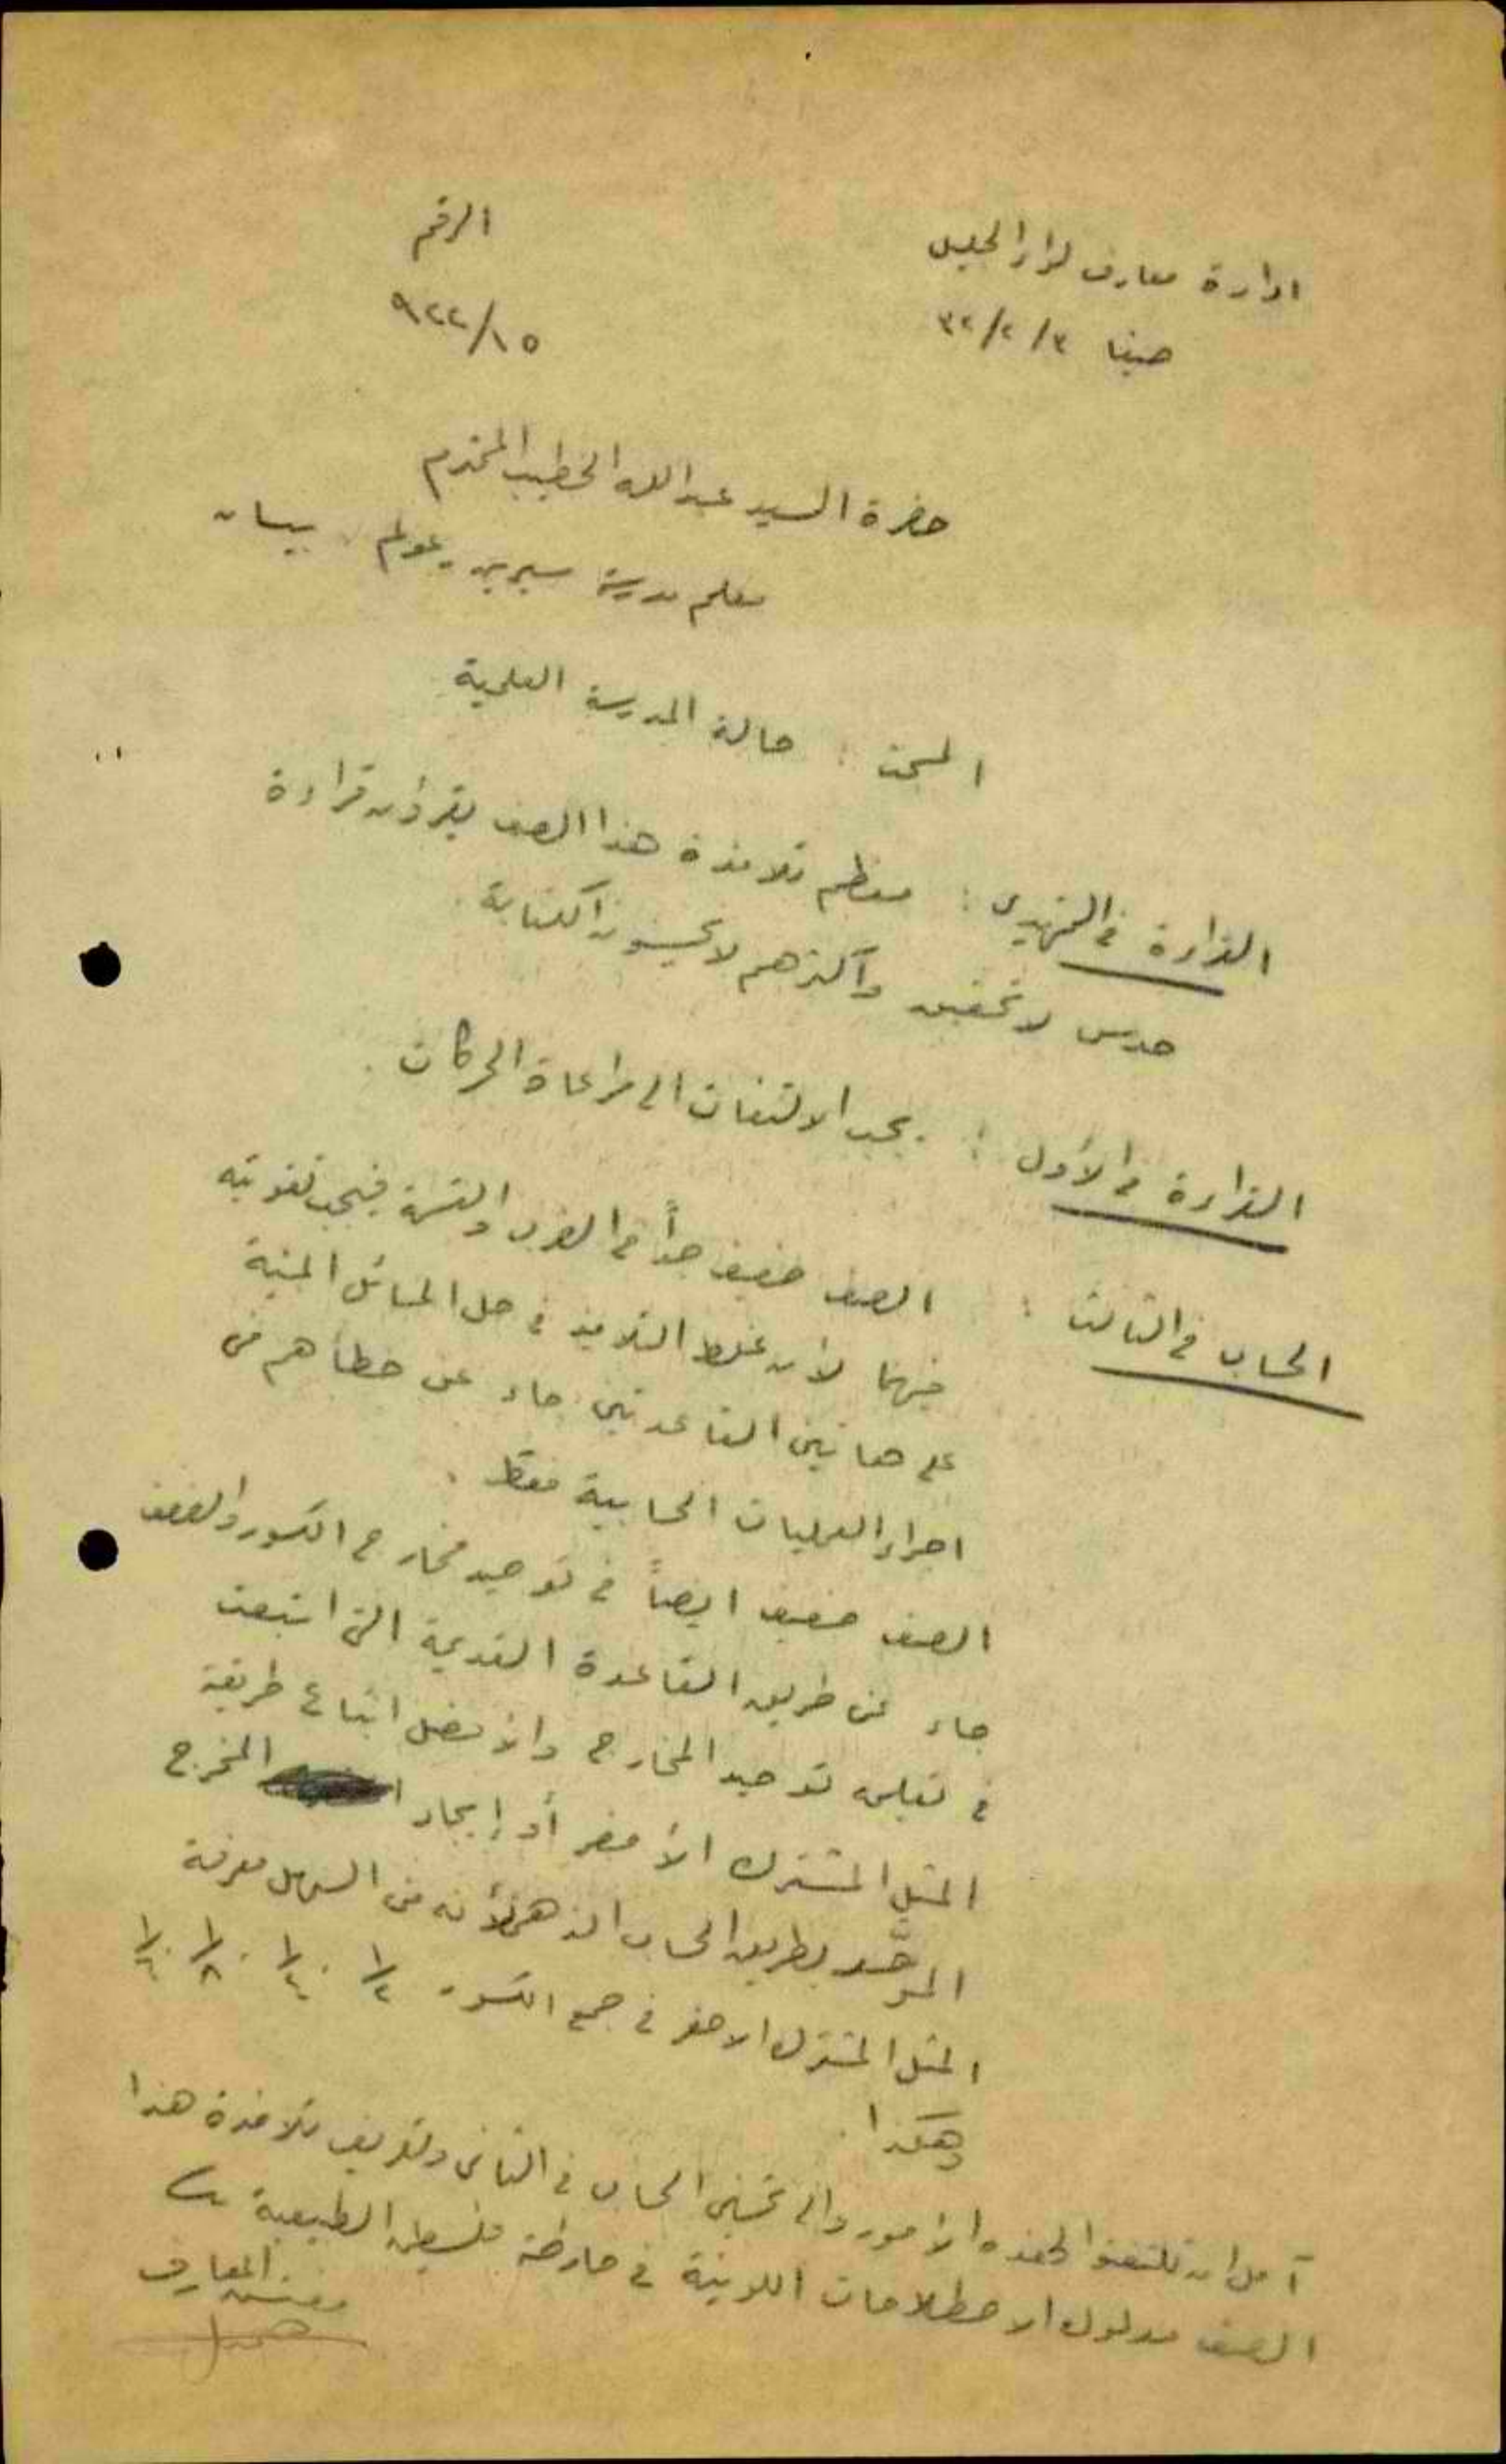 ادارة معارف لواء الجليل
الرقم
حيفا ٣/٢/٣٢
٩٢٢/١٥
حضرة السيد عبدالله الخطيب المحترم
معلم مدرسة سيرين. عولم. بيسان
المبحث : حالة المدرسة العلمية
القراءة في التمهيدي : معظم تلامذة هذا الصف يقرأون قراءة
حدس لا تحقيق وأكثرهم لا يحسنون الكتابة.
القراءة في الأول : يجب الالتفات الى مراعاة الحركات.
الحساب في الثالث : الصف ضعيف جداً في الضرب والقسمة فيجب تقويته
فيهما لأن غلط التلاميذ في حل المسائل المبنية
على هاتين القاعدتين جاء عن خطاهم في
اجراء العمليات الحسابية فقط.
الصف ضعيف ايضاً في توحيد مخارج الكسور والضعف
جاء عن طريق القاعدة القديمة التي اتبعت
في تعليم توحيد المخارج والأفضل اتباع طريقة
المثل المشترك الأصغر أو إيجاد المخرج
الموحّد بطريق الحساب الذهني لأنه من السهل معرفة
المثل المشترك الاصغر في جمع الكسور ١/٢ . ١/٤ . ١/٨ .
وهكذا.
آمل ان تلتفتوا لهذه الأمور والى تحسين الحساب في الثاني وتعريف تلامذة هذا
الصف مدلول الاصطلاحات اللونية في خارطة فلسطين الطبيعية
مفتش المعارف